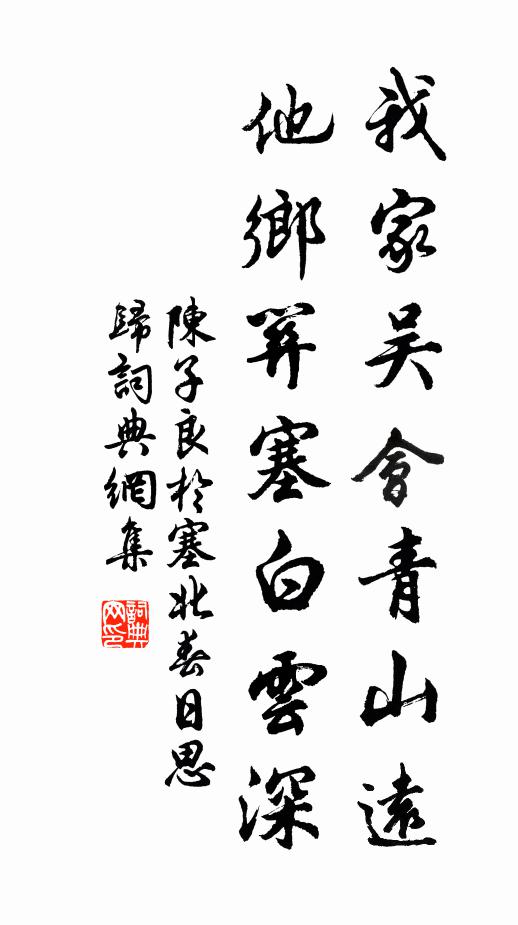 我家吴會青山遠
他鄉關塞白雲深
陳子良於塞北春日思
歸詞典網集
詞典
网印